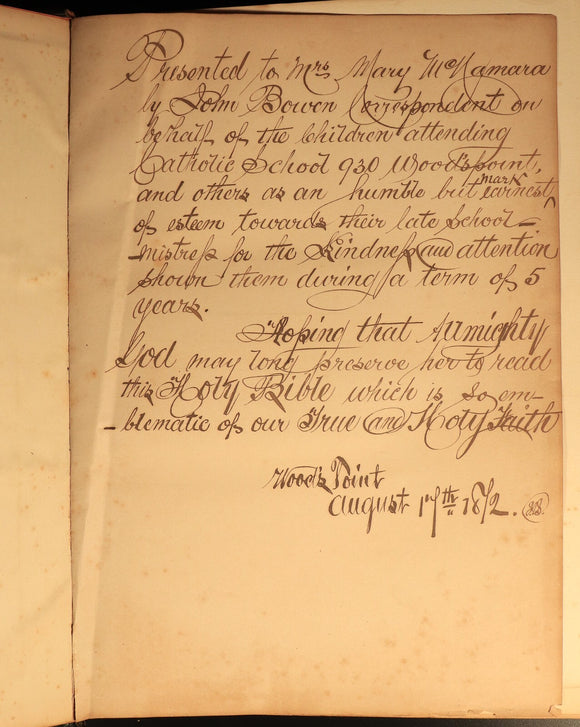 Presented to Mrs Mary McNamara
by John Bowen Correspondent on
behalf of the Children attending
Catholic School 930 Wood's point,
and others as an humble but earnest mark
of esteem towards their late School-
-mistress for the Kindness and attention
shown them during a term of 5
years.
Hoping that Allmighty
God may long preserve her to read
this Holy Bible which is so em-
-blematic of our True and Holy Faith
Wood's Point
August 17th 1872.